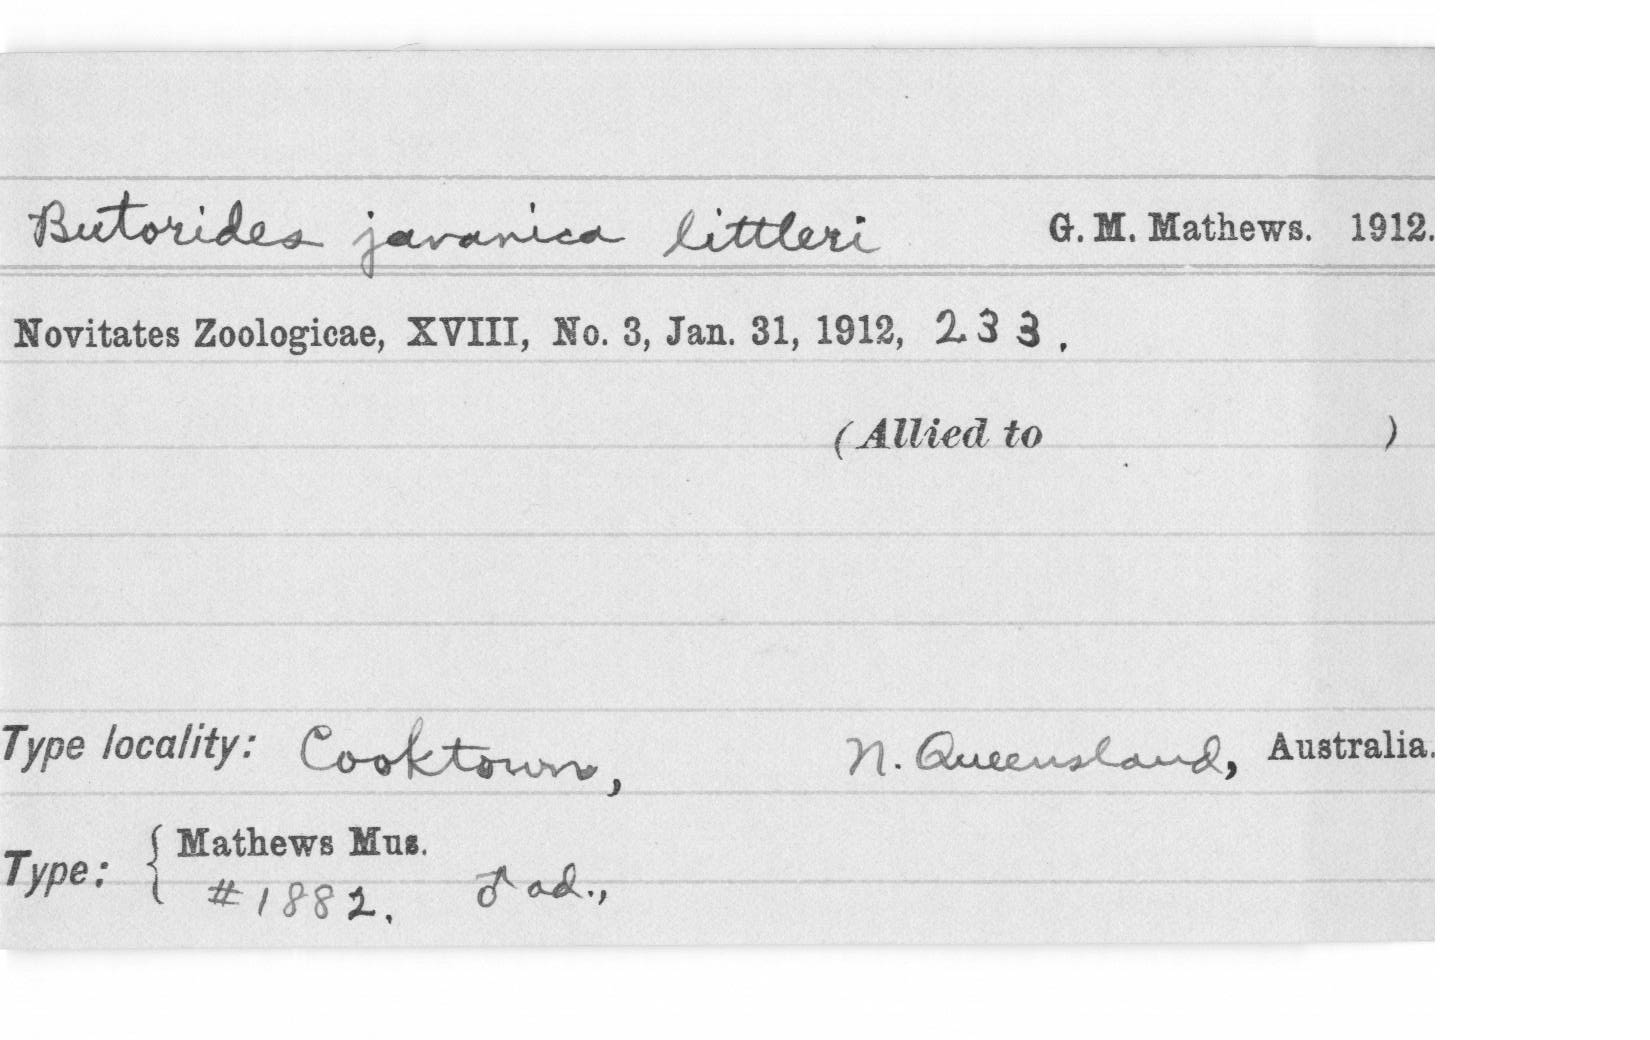 Butorides javanica littleri G. M. Mathews. 1912.
Novitates Zoologicae, XVIII, No. 3, Jan. 31, 1912, 233.
(Allied to )
Type locality: Cooktown, N. Queensland, Australia.
Type: { Mathews Mus.
#1882. ♂ ad.,